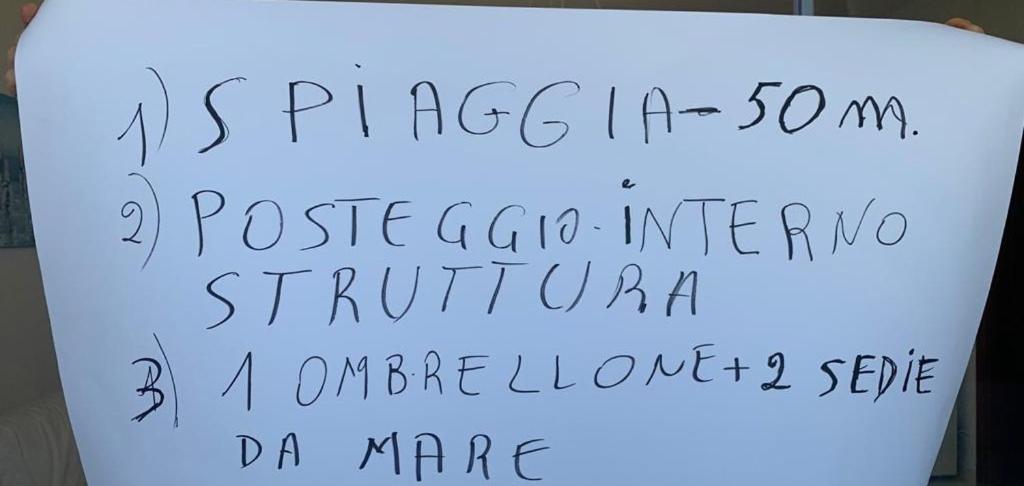 1) SPIAGGIA-50 m.
2) POSTEGGIO-INTERNO
STRUTTURA
3) 1 OMBRELLONE+2 SEDIE
DA MARE